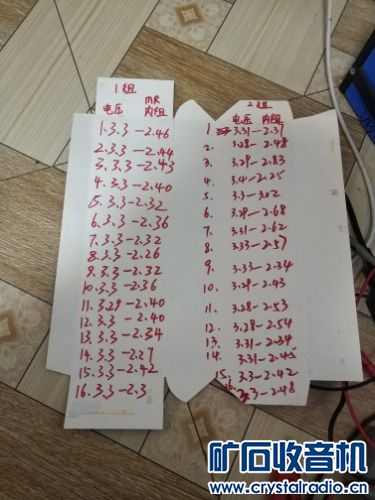 1组
mR
电压 内阻
1.3.3-2.46
2.3.3-2.44
3.3.3-2.43
4.3.3-2.40
5.3.3-2.32
6.3.3-2.36
7.3.3-2.32
8.3.3-2.26
9.3.3-2.32
10.3.3-2.36
11.3.29-2.40
12.3.3-2.40
13.3.3-2.34
14.3.3-2.27
15.3.3-2.42
16.3.3-2.3
2组
电压 内阻
1 3.31-2.37
2. 3.28-2.48
3. 3.29-2.83
4. 3.4-2.25
5. 3.3-3.02
6. 3.29-2.68
7. 3.31-2.62
8. 3.33-2.57
9. 3.33-2.34
10. 3.29-2.43
11. 3.28-2.53
12. 3.28-2.54
13. 3.31-2.34
14. 3.31-2.45
15. 3.3-2.42
16. 3.3-2.48
矿石收音机
www.crystalradio.cn